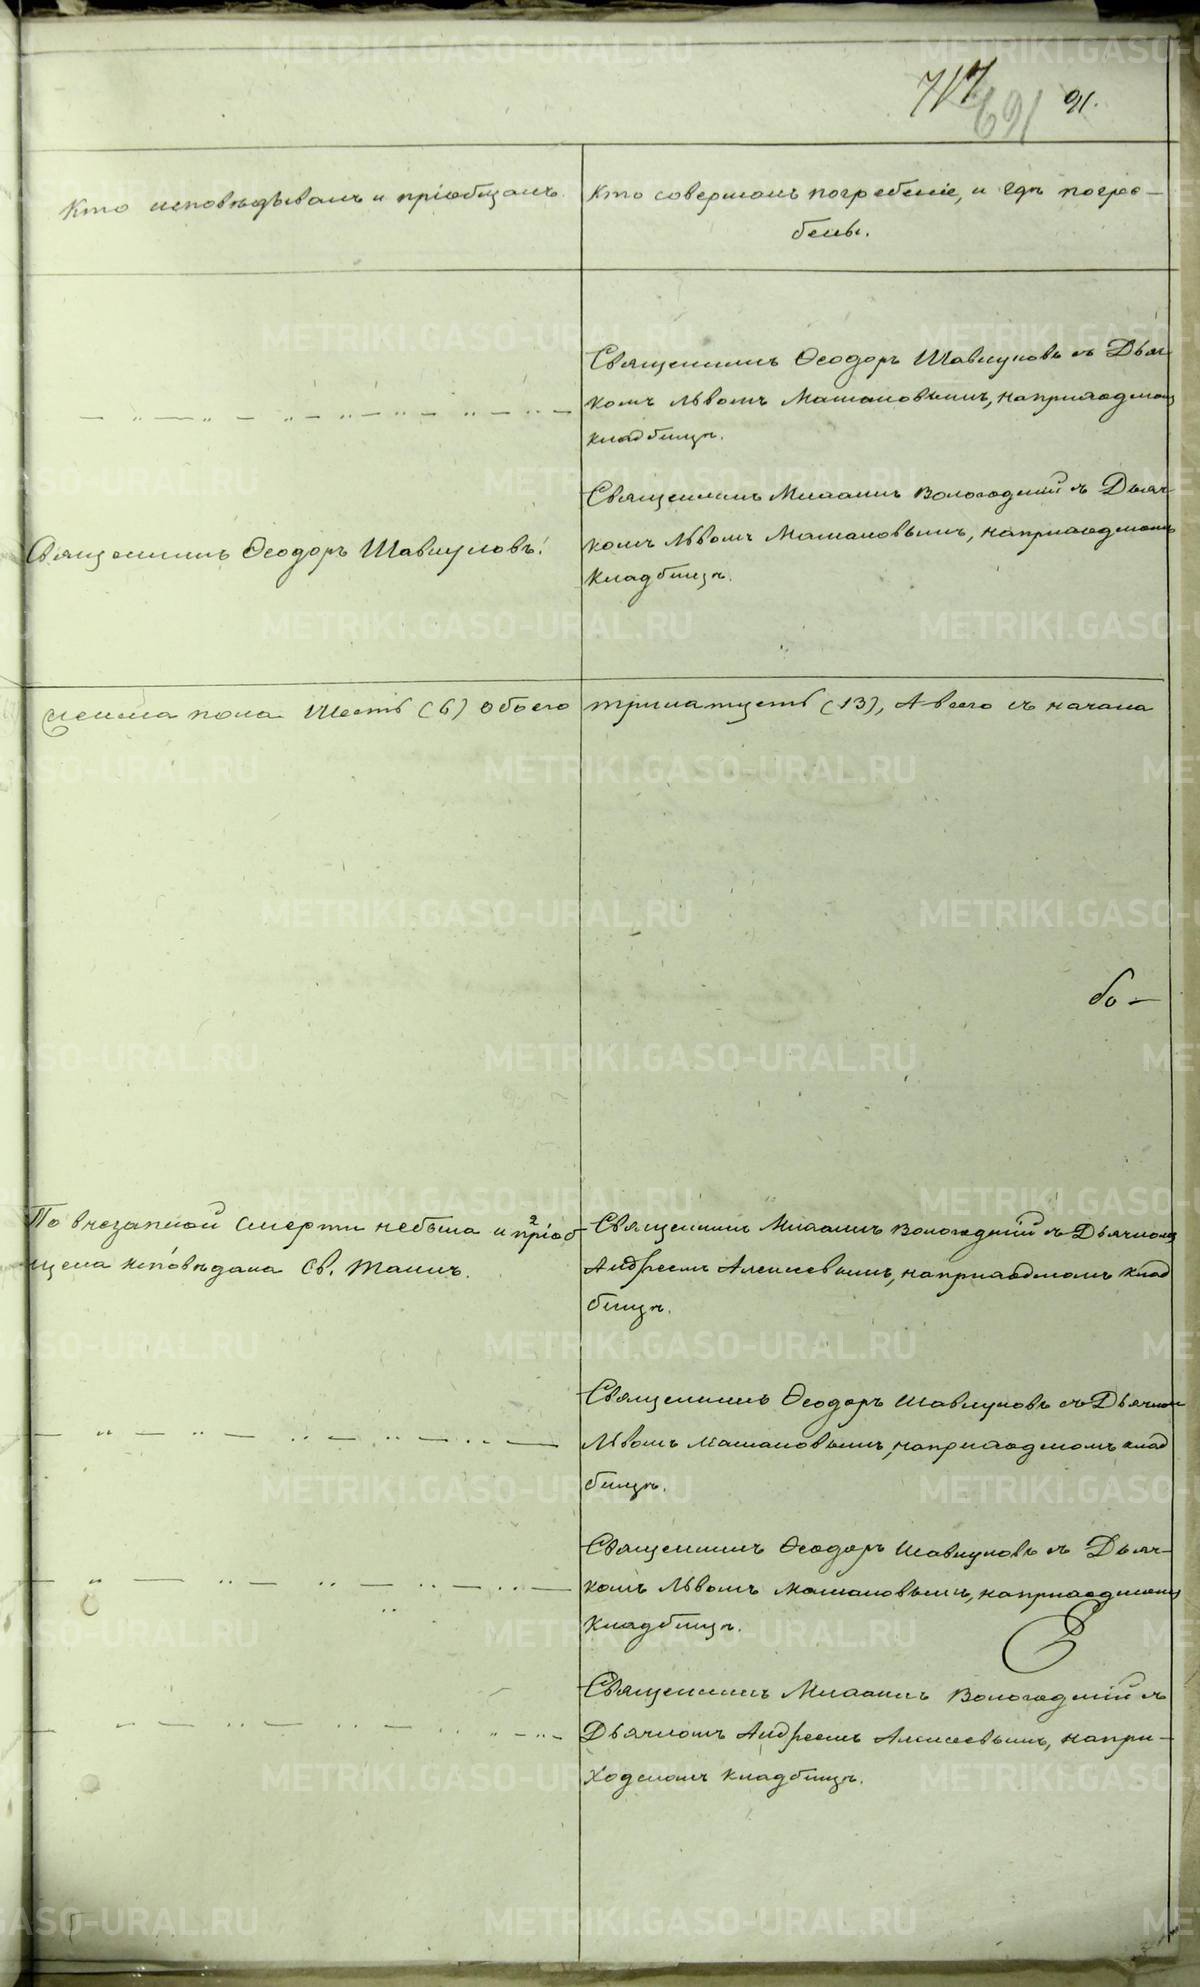 717 691 91.
Кто исповѣдывалъ и пріобщалъ.
Кто совершалъ погребеніе, и гдѣ погре-
бены.
Священникъ Ѳеодоръ Шавкуновъ съ Дьяч-
комъ Львомъ наприходскомъ
кладбищѣ.
Священникъ Ѳеодоръ Шавкуновъ.
Священникъ Михаилъ Вологодскій съ Дьяч-
комъ Львомъ наприходскомъ
Кладбищѣ.
женска пола Шесть (6) обоего тринатцеть (13), А всего съ начала
бо-
По внезапной смерти небыла и пріоб
щена исповѣдана Св. Таинъ.
Священникъ Михаилъ Вологодскій съ Дьячкомъ
Андреемъ Алексеевымъ, наприходскомъ клад
бищѣ.
Священникъ Ѳеодоръ Шавкуновъ съ Дьячком
Львомъ наприходскомъ клад
бищѣ.
Священникъ Ѳеодоръ Шавкуновъ съ Дьяч-
комъ Львомъ наприходскомъ
Кладбищѣ.
Священникъ Михаилъ Вологодскій съ
Дьячкомъ Андреемъ Алексеевымъ, напри-
ходскомъ кладбищѣ.
METRIKI.GASO-URAL.RU